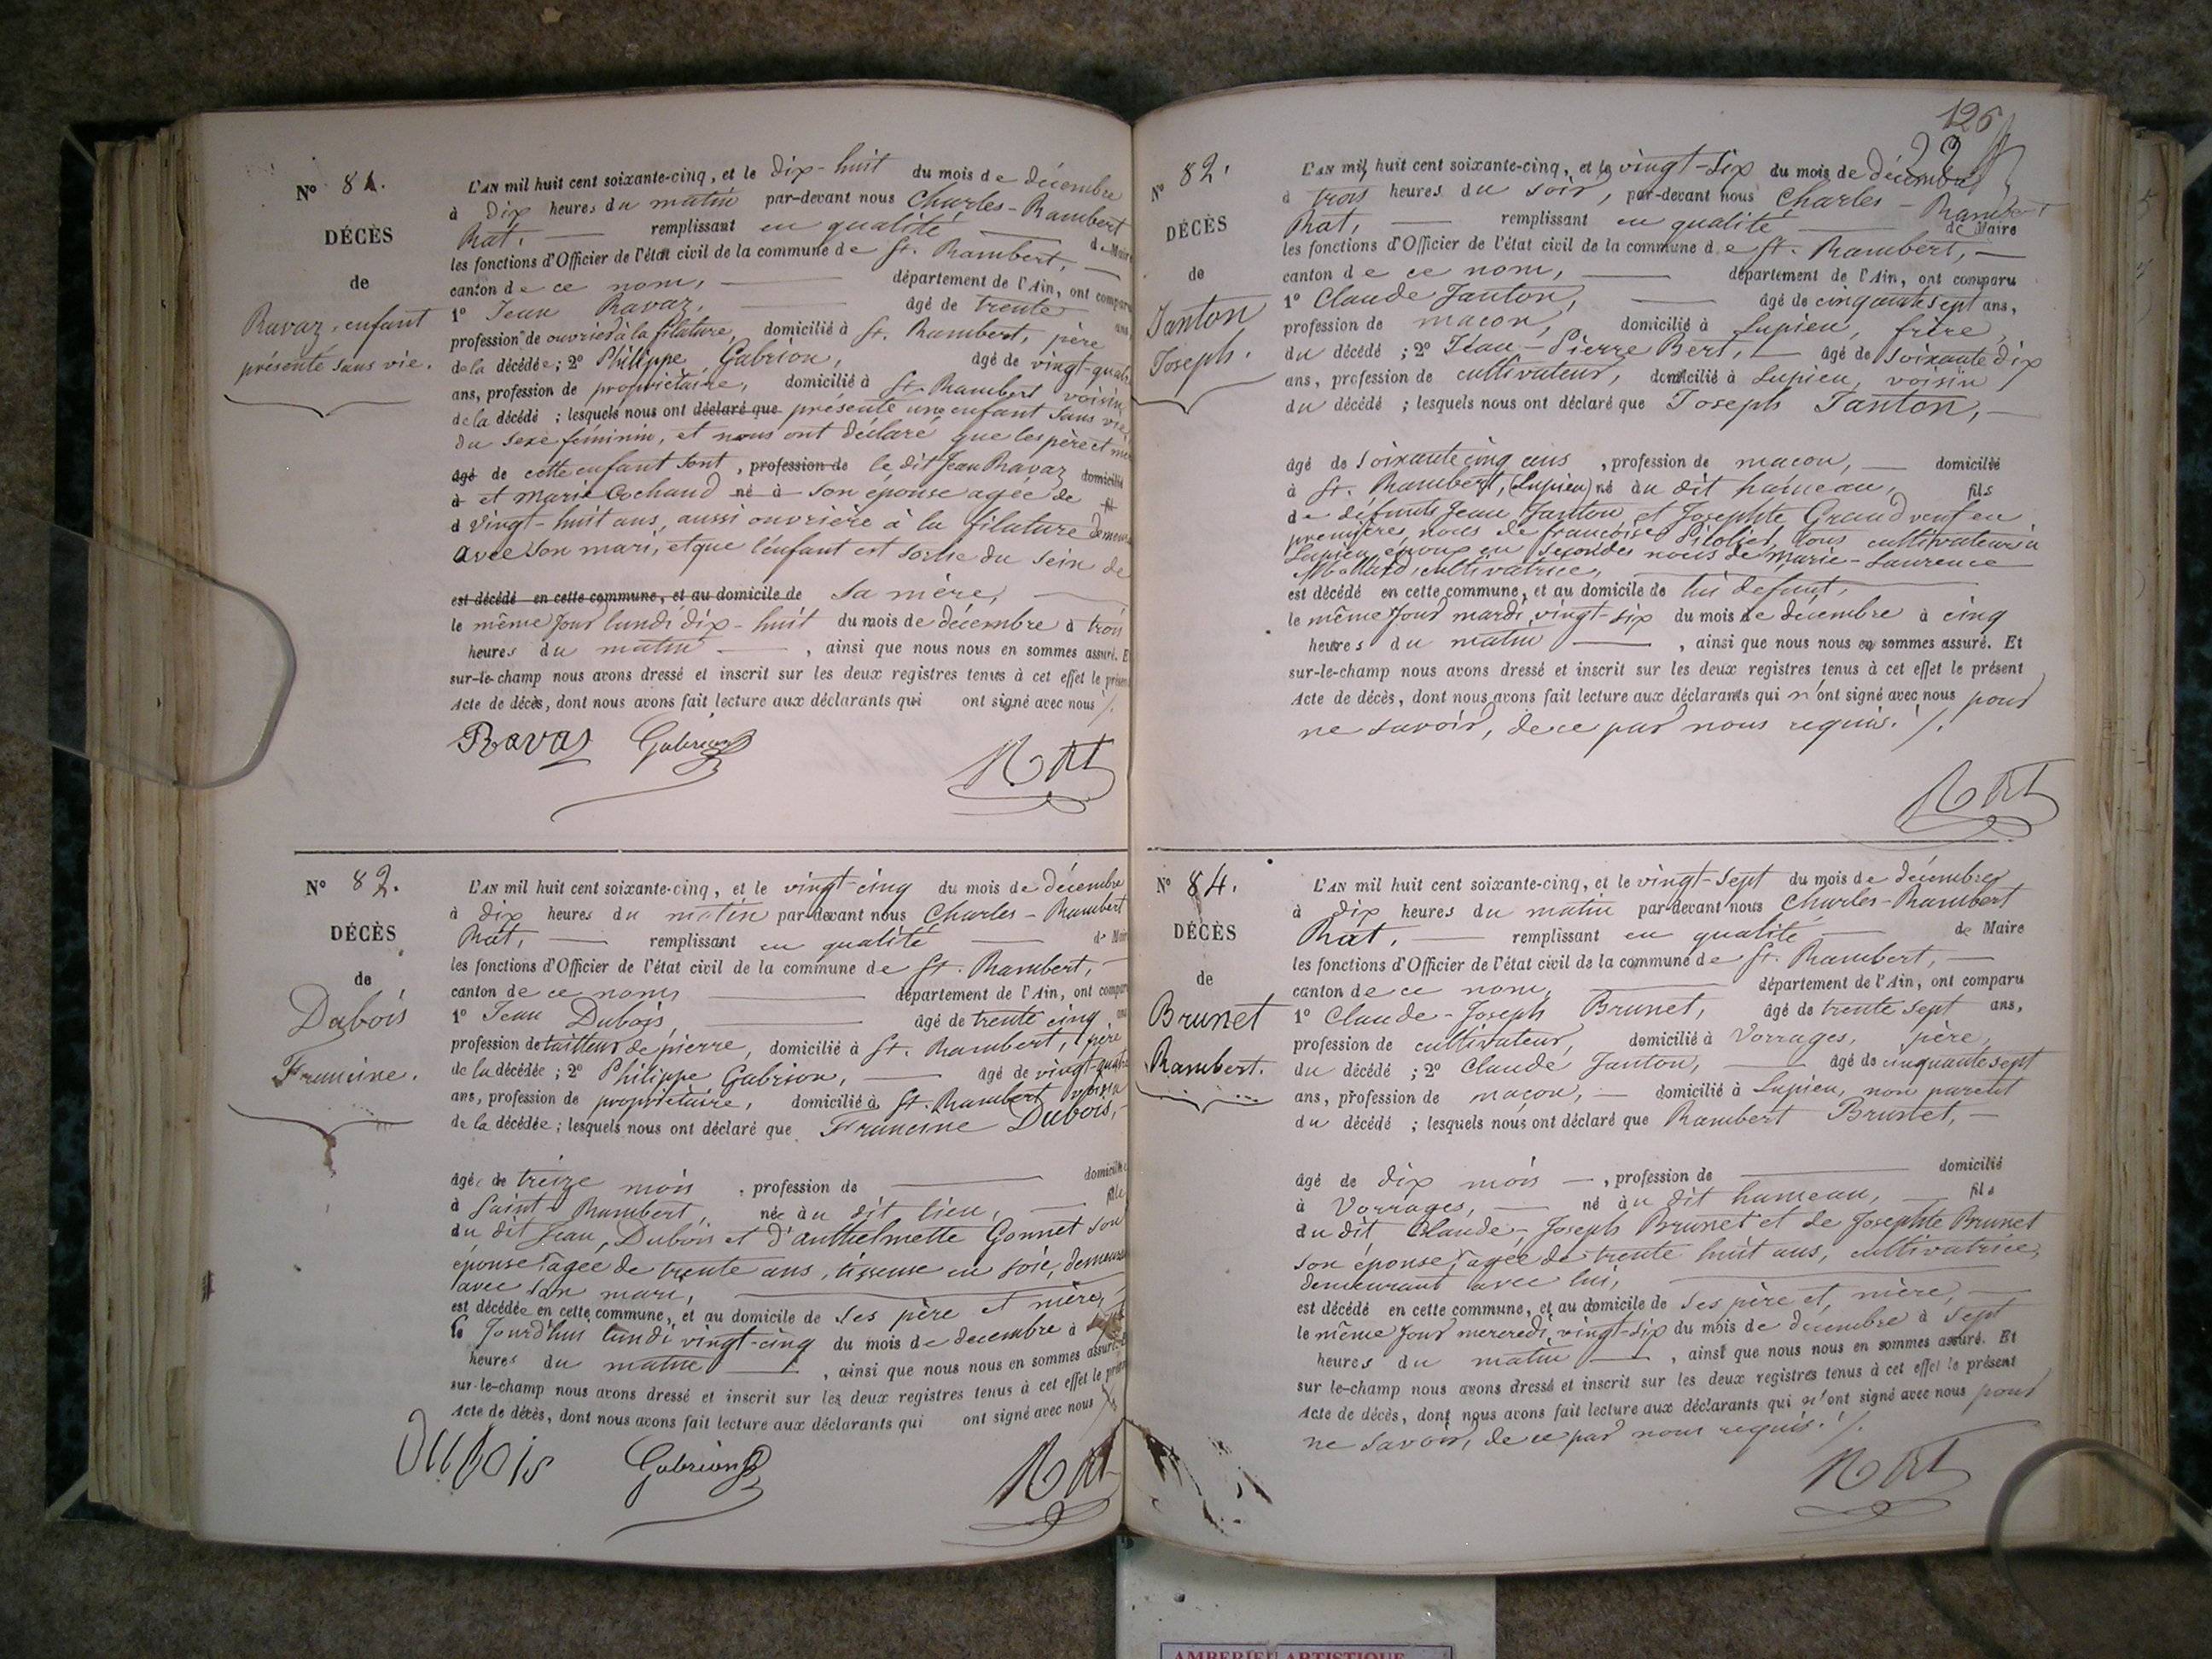 N° 81.
DÉCÈS
de
Ravaz, enfant
présenté sans vie.
L'AN mil huit cent soixante-cinq, et le dix-huit du mois de décembre
à dix heures du matin par-devant nous Charles-Rambert
Rat, remplissant en qualité de Maire
les fonctions d'Officier de l'état civil de la commune de St. Rambert,
canton de ce nom, département de l'Ain, ont comparu
1° Jean Ravaz, âgé de trente ans
profession de ouvrier à la filature, domicilié à St. Rambert, père
de la décédée; 2° Philippe Gabrion, âgé de vingt-quatre
ans, profession de propriétaire, domicilié à St. Rambert voisin
de la décédé ; lesquels nous ont déclaré que présenté une enfant sans vie
du sexe féminin, et nous ont déclaré que les père et mère
âgé de cette enfant sont , profession de le dit Jean Ravaz domicilié
à et Marie Cochand né à son épouse agée de fil
d vingt-huit ans, aussi ouvrière à la filature demeur
avec son mari, et que l'enfant est sortie du sein de
est décédé en cette commune, et au domicile de sa mère,
le même jour lundi dix-huit du mois de décembre à trois
heures du matin , ainsi que nous nous en sommes assuré. Et
sur-le-champ nous avons dressé et inscrit sur les deux registres tenus à cet effet le présent
Acte de décès, dont nous avons fait lecture aux déclarants qui ont signé avec nous
Ravaz Gabrion Rat
N° 82.
DÉCÈS
de
Dubois
Francine.
L'AN mil huit cent soixante-cinq, et le vingt-cinq du mois de décembre
à dix heures du matin par-devant nous Charles-Rambert
Rat, remplissant en qualité de Maire
les fonctions d'Officier de l'état civil de la commune de St. Rambert,
canton de ce nom, département de l'Ain, ont comparu
1° Jean Dubois, âgé de trente cinq ans
profession de tailleur de pierre, domicilié à St. Rambert, père
de la décédée; 2° Philippe Gabrion, âgé de vingt-quatre
ans, profession de propriétaire, domicilié à St. Rambert voisin
de la décédée; lesquels nous ont déclaré que Francine Dubois,
âgée de treize mois , profession de domiciliée
à Saint-Rambert, née au dit lieu, fille
du dit Jean Dubois et d'anthelmette Gonnet son
épouse agée de trente ans, tisseuse en soie, demeurant
avec son mari,
est décédée en cette commune, et au domicile de ses père et mère,
le jourd'hui lundi vingt-cinq du mois de decembre à
heures du matin , ainsi que nous nous en sommes assuré. Et
sur-le-champ nous avons dressé et inscrit sur les deux registres tenus à cet effet le présent
Acte de décès, dont nous avons fait lecture aux déclarants qui ont signé avec nous
Dubois Gabrion Rat
126
22
N° 82.
DÉCÈS
de
Tanton
Joseph.
L'AN mil huit cent soixante-cinq, et le vingt-six du mois de décembre
à trois heures du soir, par-devant nous Charles-Rambert
Rat, remplissant en qualité de Maire
les fonctions d'Officier de l'état civil de la commune de St. Rambert,
canton de ce nom, département de l'Ain, ont comparu
1° Claude Tanton, âgé de cinquante sept ans,
profession de maçon, domicilié à Lupieu, frère
du décédé ; 2° Jean-Pierre Bert, âgé de soixante dix
ans, profession de cultivateur, domicilié à Lupieu, voisin
du décédé ; lesquels nous ont déclaré que Joseph Tanton,
âgé de soixante cinq ans , profession de maçon, domicilié
à St. Rambert, (Lupieu) né au dit hameau, fils
de défunts Jean Tanton et Josephte Grand veuf en
premières noces de françoise tous cultivateurs à
Lupieu, époux en secondes noces de Marie-Laurence
Mollard, cultivatrice,
est décédé en cette commune, et au domicile de lui défunt,
le même jour mardi vingt-six du mois de décembre à cinq
heures du matin , ainsi que nous nous en sommes assuré. Et
sur-le-champ nous avons dressé et inscrit sur les deux registres tenus à cet effet le présent
Acte de décès, dont nous avons fait lecture aux déclarants qui n'ont signé avec nous pour
ne savoir, de ce par nous requis.
Rat
N° 84.
DÉCÈS
de
Brunet
Rambert.
L'AN mil huit cent soixante-cinq, et le vingt-sept du mois de décembre
à dix heures du matin par-devant nous Charles-Rambert
Rat, remplissant en qualité de Maire
les fonctions d'Officier de l'état civil de la commune de St. Rambert,
canton de ce nom, département de l'Ain, ont comparu
1° Claude-Joseph Brunet, âgé de trente sept ans,
profession de cultivateur, domicilié à Vorrages, père,
du décédé ; 2° Claude Tanton, âgé de cinquante sept
ans, profession de maçon, domicilié à Lupieu, non parent
du décédé ; lesquels nous ont déclaré que Rambert Brunet,
âgé de dix mois , profession de domicilié
à Vorrages, né au dit hameau, fils
du dit Claude-Joseph Brunet et de Josephte Brunet
son épouse, agée de trente huit ans, cultivatrice,
demeurant avec lui,
est décédé en cette commune, et au domicile de ses père et mère,
le même jour mercredi vingt-six du mois de décembre à sept
heures du matin , ainsi que nous nous en sommes assuré. Et
sur le-champ nous avons dressé et inscrit sur les deux registres tenus à cet effet le présent
Acte de décès, dont nous avons fait lecture aux déclarants qui n'ont signé avec nous pour
ne savoir, de ce par nous requis.
Rat
AMBERIEU ARTISTIQUE